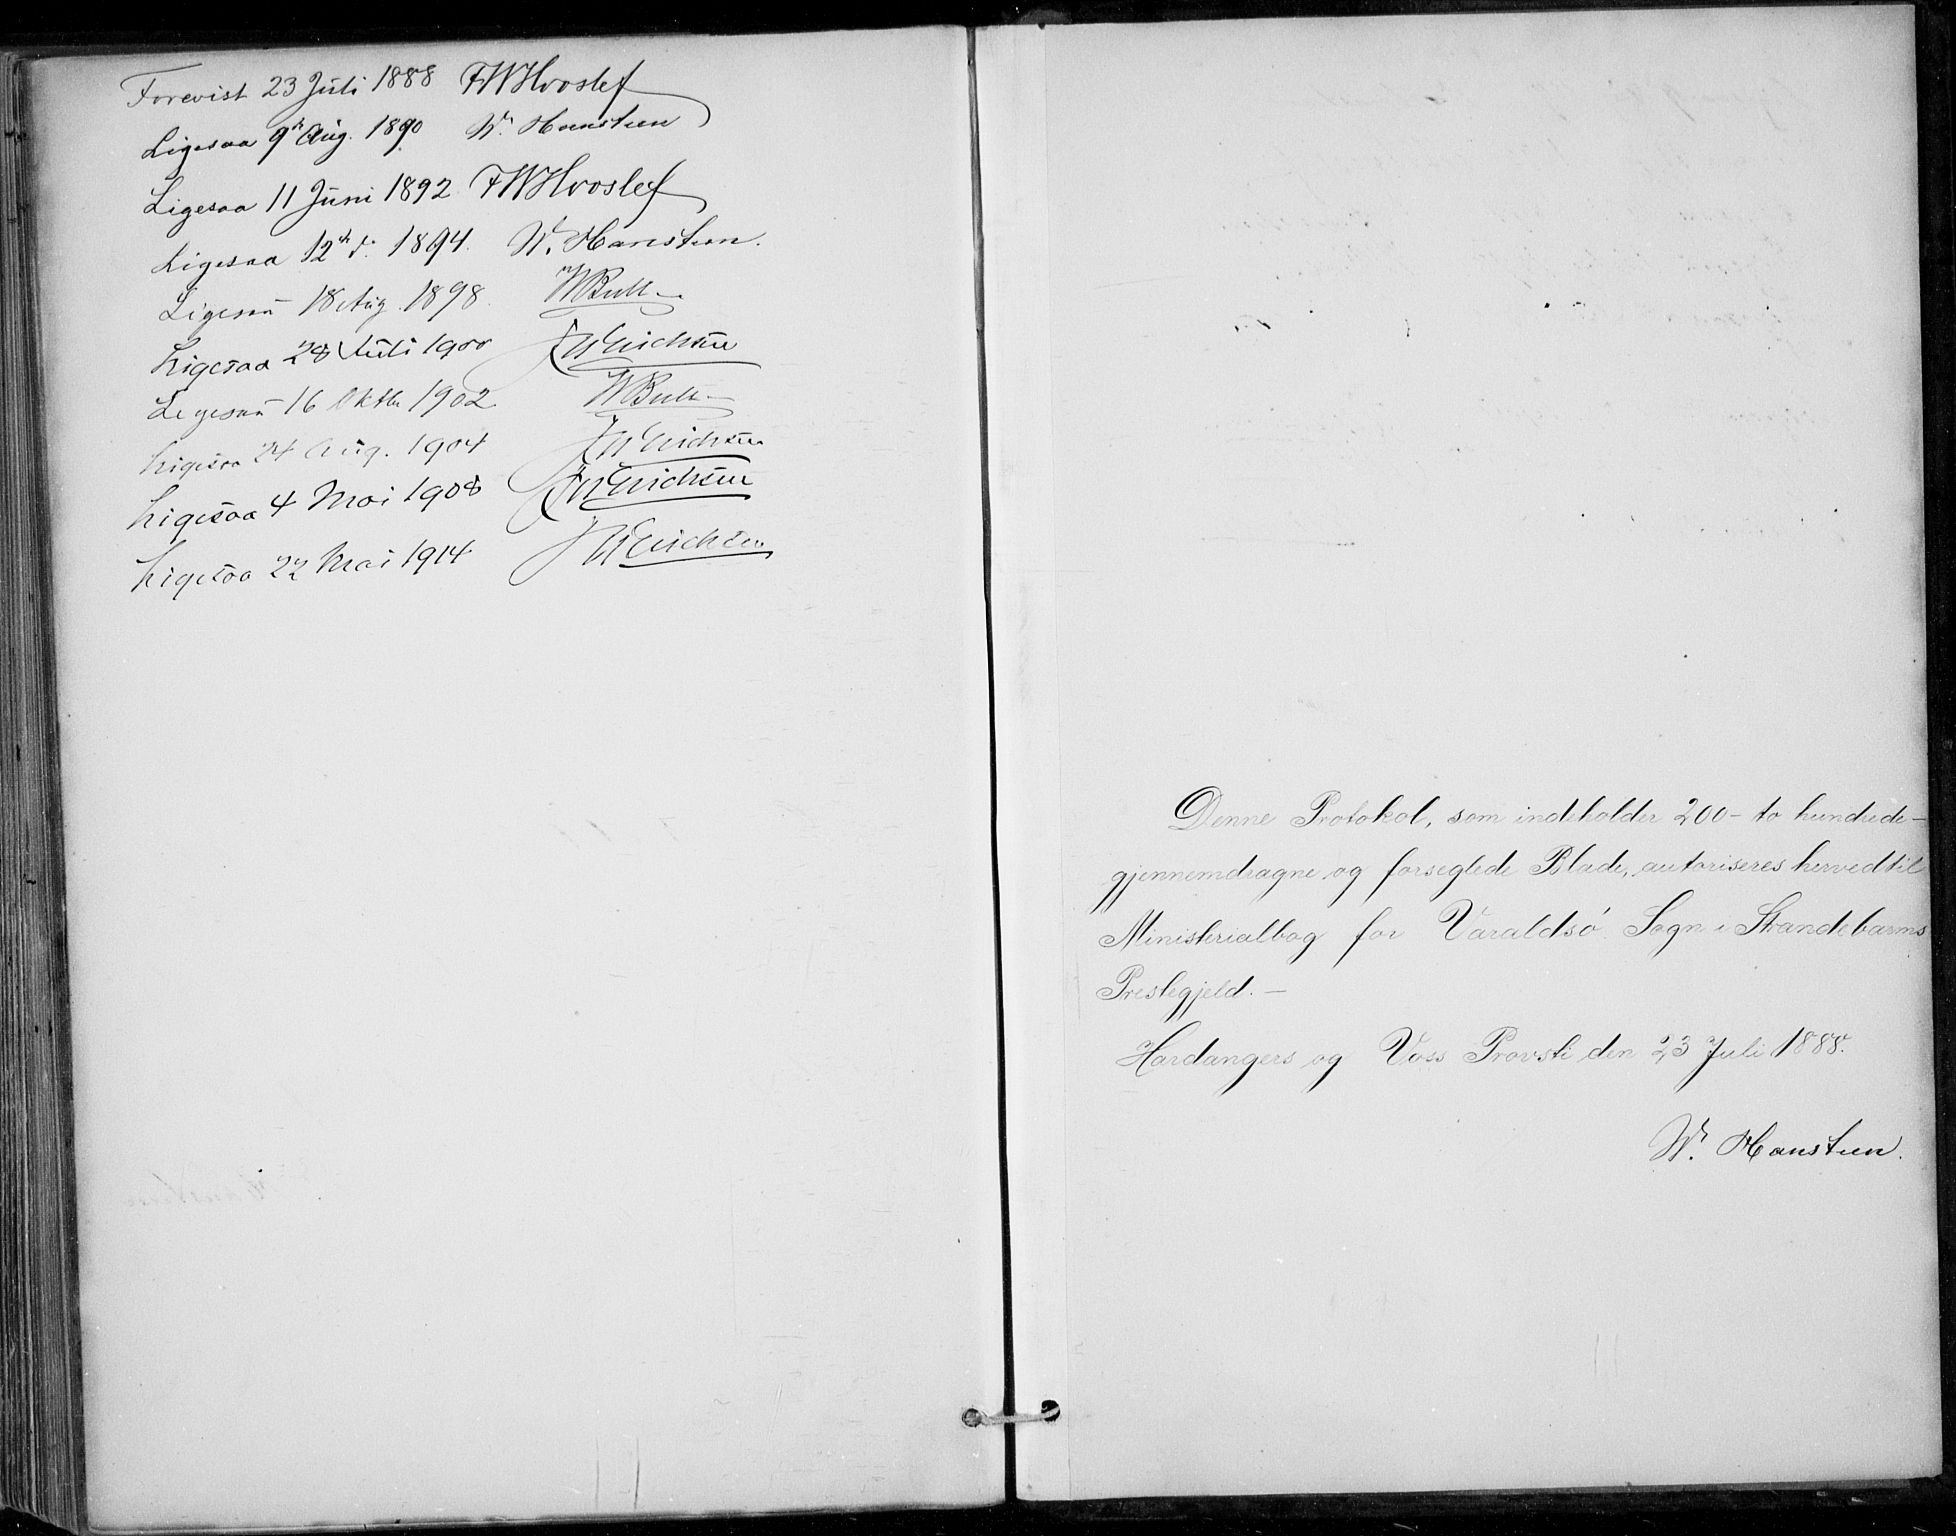 Forevist 23 Juli 1888 FWHvoslef
Ligesaa 9de Aug. 1890 Wm. Hansteen
Ligesaa 11 Juni 1892 FWHvoslef
Ligesaa 12te d. 1894. Wm. Hansteen.
Ligesaa 18 Aug. 1898. WBull
Ligesaa 28 Juli 1900 Erichsen
Ligesaa 16 Oktbr 1902 WBull
Ligesaa 24 Aug. 1904 Erichsen
Ligesaa 4 Mai 1908 Erichsen
Ligesaa 22 Mai 1914 Erichsen
Denne Protokol, som indeholder 200 - to hundrede -
gjennemdragne og forseglede Blade, autoriseres herved til
Ministerialbog for Varaldsö Sogn i Strandebarms
Prestegjeld. -
Hardangers og Voss Provsti den 23 Juli 1888.
Wm. Hansteen.